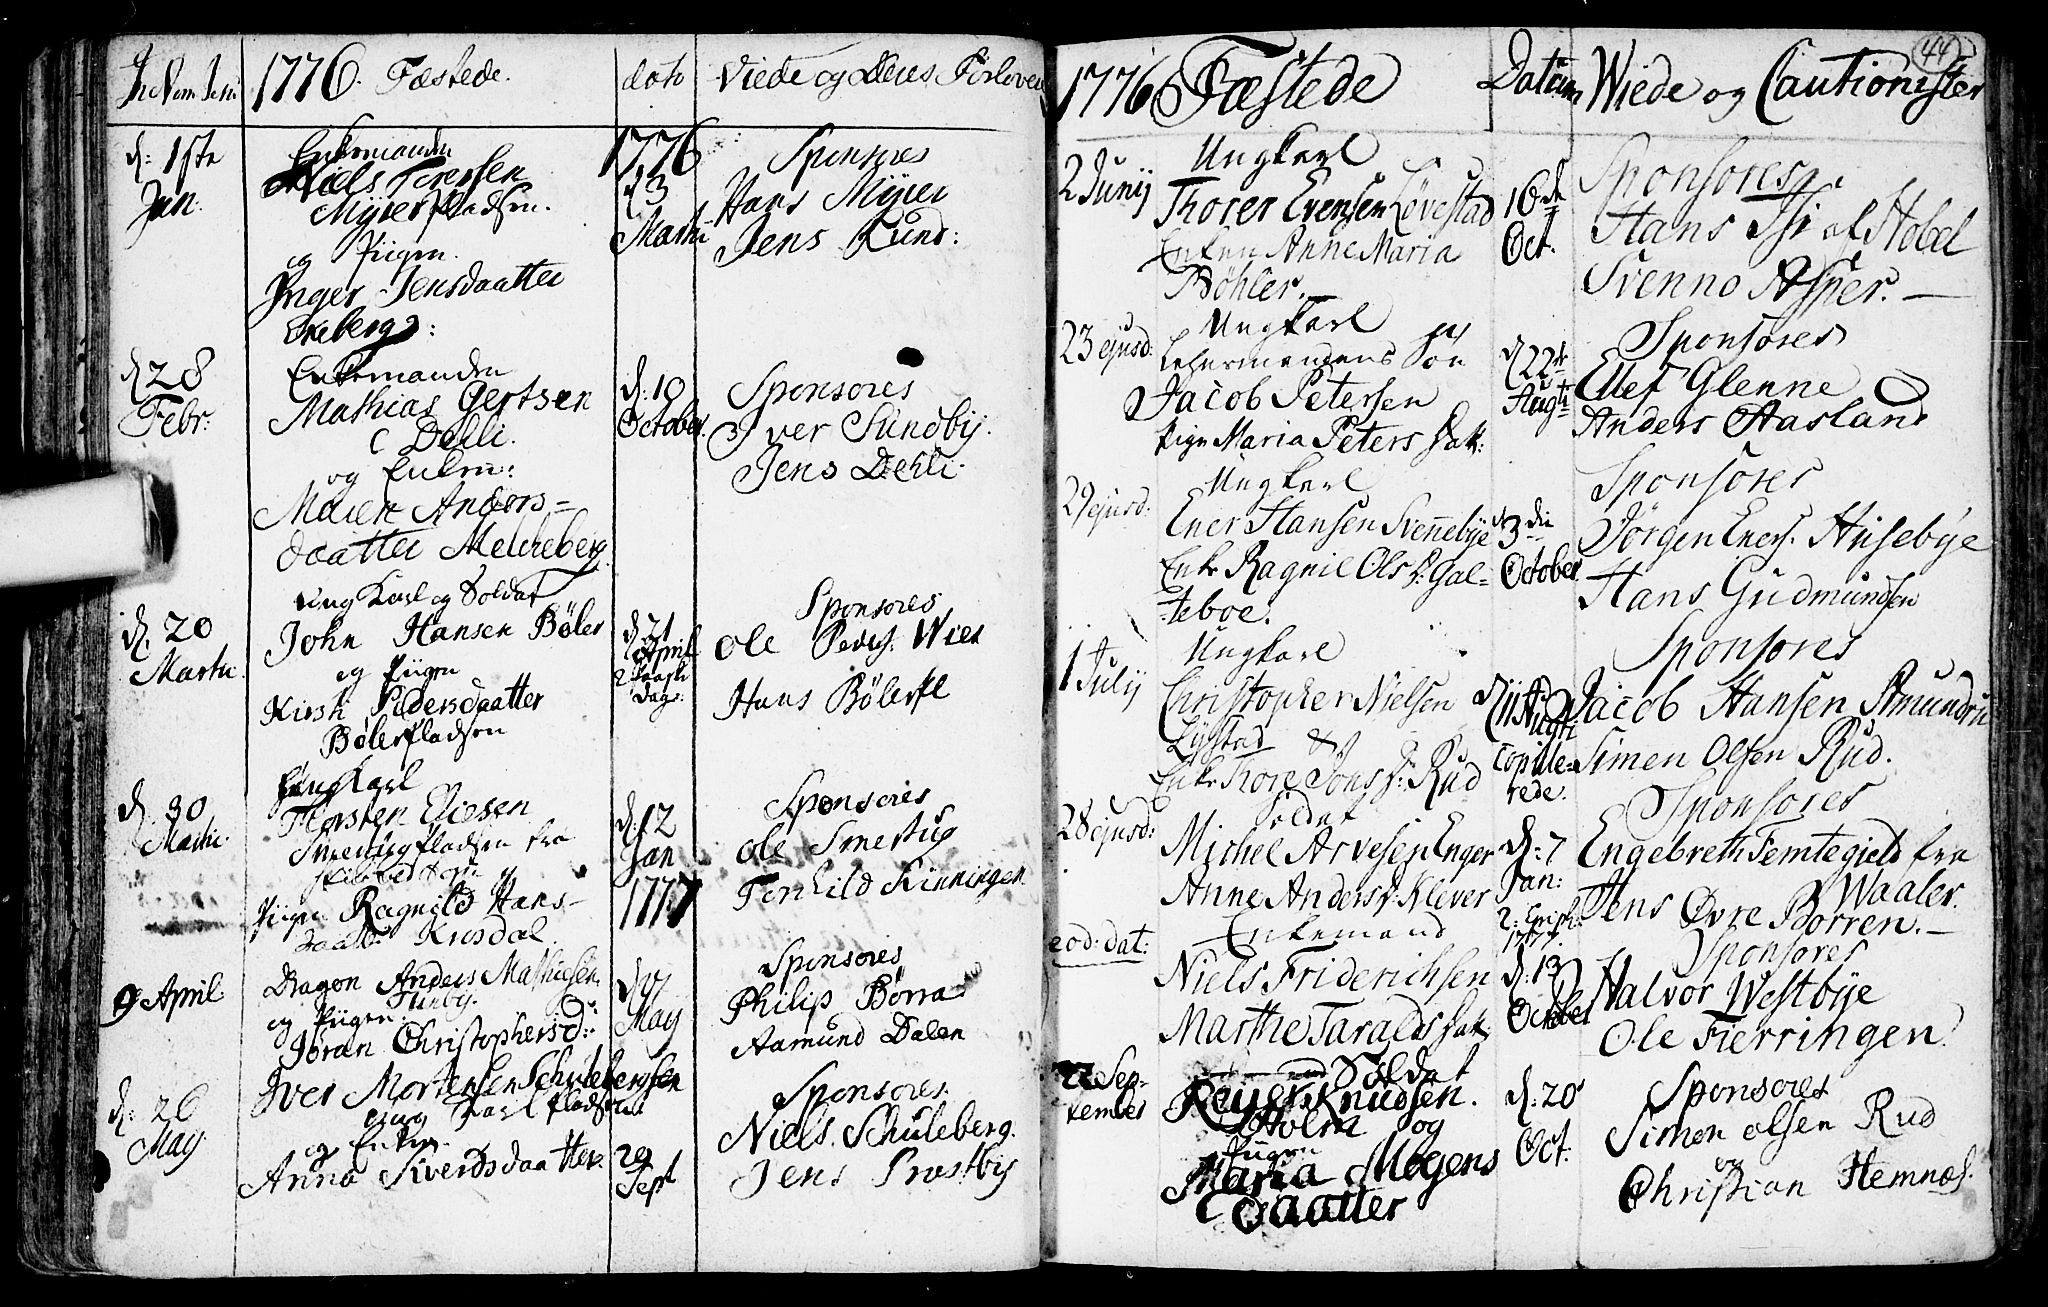 In Nom: Jesu 1776. Fæstede. dato Viede og Deres Forlovere
d: 1ste Jan:
Enkemanden
Niels
Myrer Pladsen.
og Piigen
Inger Jensdaatter
Ekeberg:
1776
d 3
Martii
Sponsores
Hans Myrer
Jens Lund:
d 28
Febr:
Enkemanden
Mathias Gertsen
Dehli.
og Enken:
Maren Anders=
daatter Melcheberg.
d: 10
October.
Sponsores
Iver Sundby.
Jens Dehli.
d. 20
Martii
ung Karl og Soldat
John Hansen Bøler
og Piigen
Kirsti Pedersdaatter
Bølerpladsen
d 21
April
2 Paaske
Dag:
Sponsores
Ole Peders: Wies
Hans Bøler
d. 30
Martii.
ung Karl
Thorsten Eliesen
Smestugpladsen fra
og
Piigen Ragnild Hans-
daatt: Krosdal
d: 12
Jan
1777
Sponsores
Ole Smestug
Terkild Kinningen
9 April
Dragon Anders Mathiesen
og Piigen
Joran Christophersd:
d 17
May
Sponsores
Philip Borra
Aamund Dalen
d: 26
May
Iver Mortensen Schulebergsen
ung Karl Pladsen
og Enken
Anna Siverdsdaatter
29
Sept
Sponsores.
Niels Schuleberg.
Jens Prostby
44
1776 Fæstede Datum Wiede og Cautionister
2 Junij
Ungkarl
Thorer Evensen Løvestad
Enken Anne Maria
Bøhler.
16de
Oct.
Sponsores
Hans af Hobel
Svenno Asper.
23 ejusd:
Ungkarl
Søn
Jacob Petersen
Pige Maria Peters datt:
d 22de
Augti
Sponsores
Ellef Glenne
Anders Aasland
29 ejusd:
Ungkarl
Ener Hansen Svennebye
Enke Ragnil Ols d: Gal=
=teboe.
d 3die
October
Sponsores
Jørgen Eners. Husebye
Hans Gudmundsen
1 Julij
Ungkarl
Christopher Nielsen
Lystad &
Enke Thore Jons d: Rud
d 11 Augti
copule=
rede.
Sponsores
Jacob Hansen Amundru
Simen Olsen Rud.
28 ejusd:
Soldat
Michel Arvesen Enger
Anne Anders d: Klever
d: 7
Jan:
2: Epiph:
1777
Sponsores
Engebreth Femtegield fra
Waaler.
Jens Øvre Borren.
eod: dat:
Enkemand
Niels Friderichsen
Marthe Taralds datt
d: 13
October
Sponsores
Halvor Westbye
Ole Fierringen
22 Sep-
tember
Soldat
Reyer Knudsen.
Holm og
Piigen
Maria Mogens
Daatter
d: 20
Oct:
Sponsores
Simen Olsen Rud
og
Christian Hemnæs.